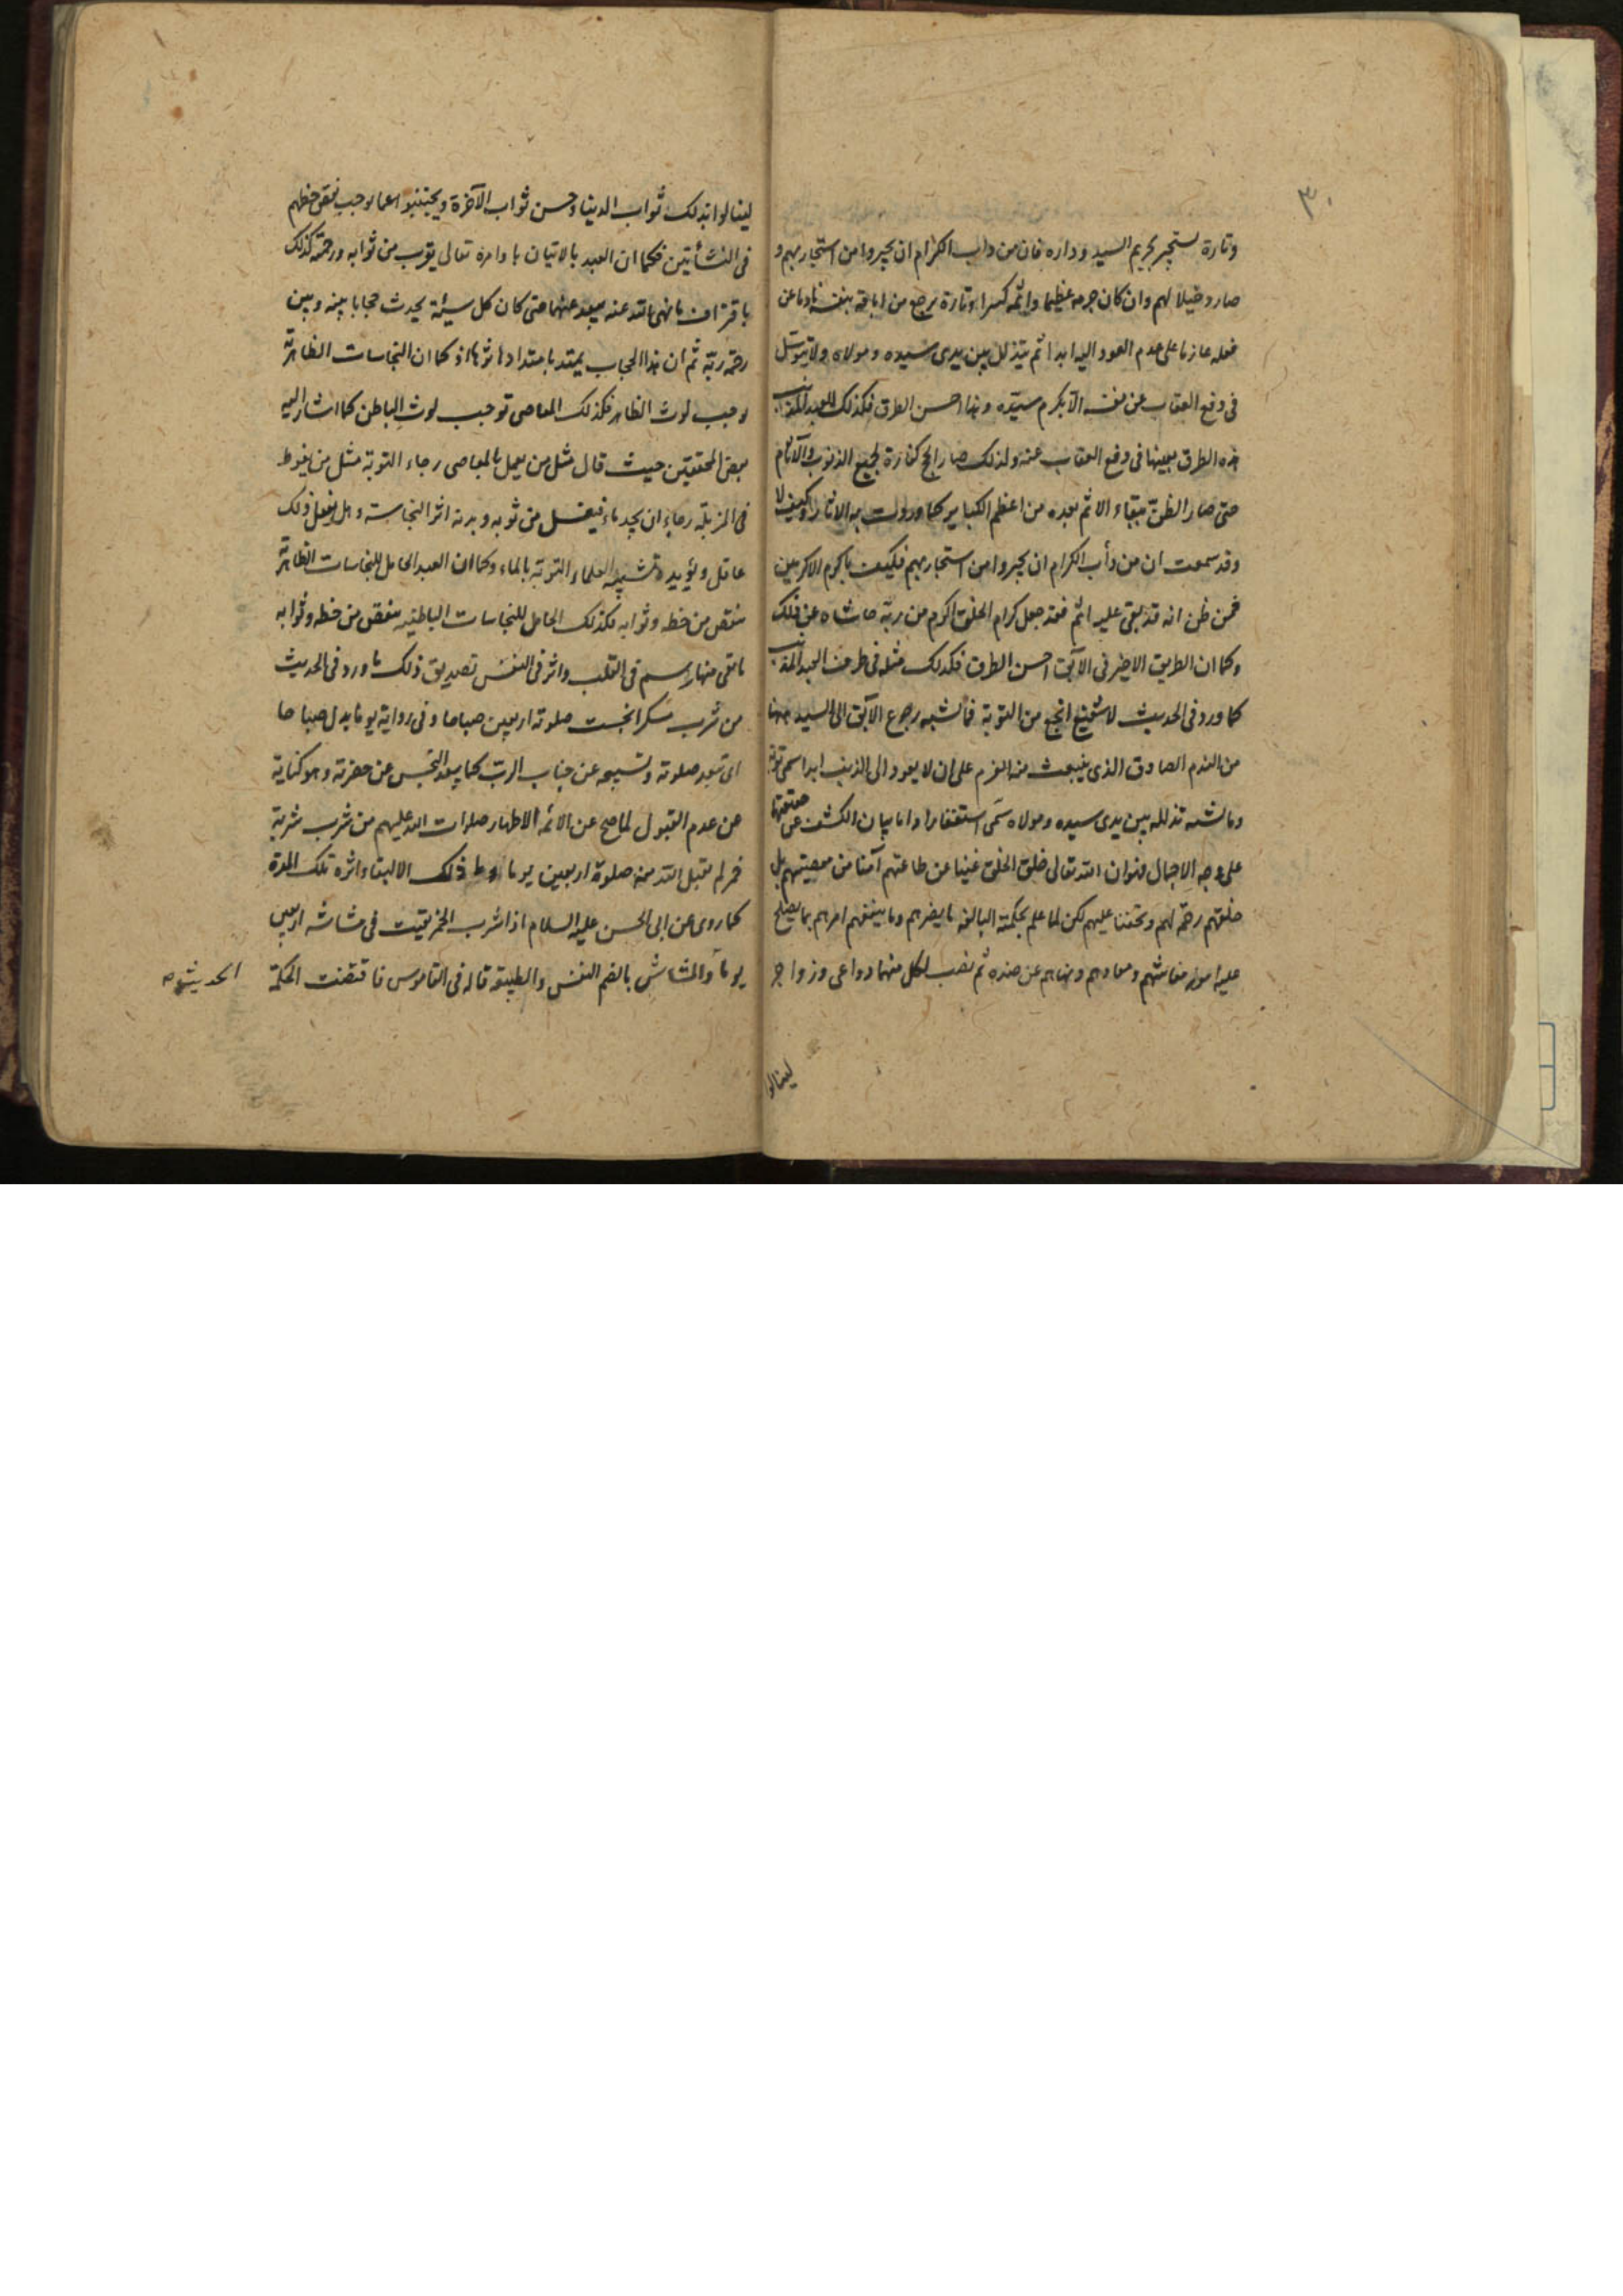 ٣٠
وتارة يستجير بحريم السيد وداره فان من داب الكرام ان يجيروا من استجار بهم و
صار دخيلا لهم وان كان جرمه عظيما واثمه كبيرا وتارة يرجع من اباقه بنفسه نادما عن
فعله عازما على عدم العود اليه ابدا ثم يتذلل بين يدى سيده ومولاه ولا يتوسل
فى دفع العقاب عن نفسه الا بكرم سيّده وهذا احسن الطرق فكذلك للعبد المذنب
هذه الطرق بعينها فى دفع العقاب عنه ولذلك صار الحج كفارة لجميع الذنوب والآثام
حتى صار الظن ببقاء الاثم بعده من اعظم الكباير كما وردت به الاثار وكيف لا
وقد سمعت ان من دأب الكرام ان يجيروا من استجار بهم فكيف باكرم الاكرمين
فمن ظن انه قد بقى عليه اثم فقد جعل كرام الخلق اكرم من ربّه حاشاه عن ذلك
وكما ان الطريق الاخير فى الآبق احسن الطرق فكذلك مثله فى طرف العبد المذنب
كما ورد فى الحديث لا شفيع انجح من التوبة فما يشبه رجوع الآبق الى السيد هنا
من الندم الصادق الذى ينبعث منه العزم على ان لا يعود الى الذنب ابدا سمى توبة
وما يشبه تذلله بين يدى سيده ومولاه سمّى استغفارا واما بيان الكشف عن حقيقتها
على وجه الاجمال فهو ان الله تعالى خلق الخلق غنيا عن طاعتهم آمنا من معصيتهم بل
خلقهم رحمة لهم وتحننا عليهم لكن لما علم بحكمته البالغه ما يضرهم وما ينفعهم امرهم بما يصلح
عليه امور معاشهم ومعادهم ونهاهم عن ضده ثم نصب لكل منهما دواعى وزواجر
لينالوا
لينالوا بذلك ثواب الدنيا وحسن ثواب الآخرة ويجتنبوا عما يوجب نقص حظهم
فى النشأتين فكما ان العبد بالاتيان باوامره تعالى يقرب من ثوابه ورحمته كذلك
باقتراف ما نهى الله عنه يبعد عنهما حتى كان كل سيئة يحدث حجابا بينه وبين
رحمة ربّه ثم ان هذا الحجاب يمتد بامتداد اثرها اذ كما ان النجاسات الظاهرة
يوجب لوث الظاهر فكذلك المعاصى توجب لوث الباطن كما اشار اليه
بعض المحققين حيث قال مثل من يعمل بالمعاصى رجاء التوبة مثل من يغوط
فى المزبلة رجاء ان يجد ماء فيغسل من ثوبه وبدنه اثر النجاسة وهل يفعل ذلك
عاقل ويؤيده تشبيه العلماء التوبة بالماء وكما ان العبد الحامل للنجاسات الظاهرة
ينقص من حظه وثوابه فكذلك الحامل للنجاسات الباطنيه ينقص من حظه وثوابه
ما بقى منها رسم فى القلب واثر فى النفس تصديق ذلك ما ورد فى الحديث
من شرب مسكرا نجست صلوته اربعين صباحا وفى رواية يوما بدل صباحا
اى تبعد صلوته وتسبيحه عن جناب الرب كما يبعد النجس عن حضرته وهو كناية
عن عدم القبول لما صح عن الائمه الاطهار صلوات الله عليهم من شرب شربة
خمر لم يقبل الله منه صلوة اربعين يوما ذلك الا لبقاء اثره تلك المدة
كما روى عن ابى الحسن عليه السلام اذا شرب الخمر بقيت فى مشاشه اربعين
يوما والمشاش بالضم النفس والطبيعة قاله فى القاموس فاقتضت الحكمة
الحديث